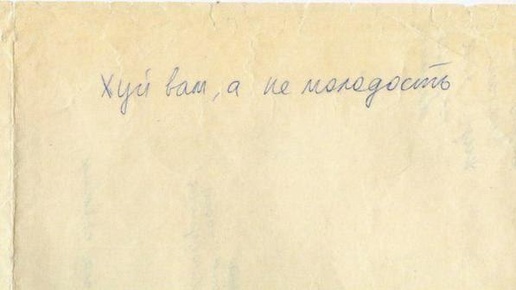 Хуй вам, а не молодость